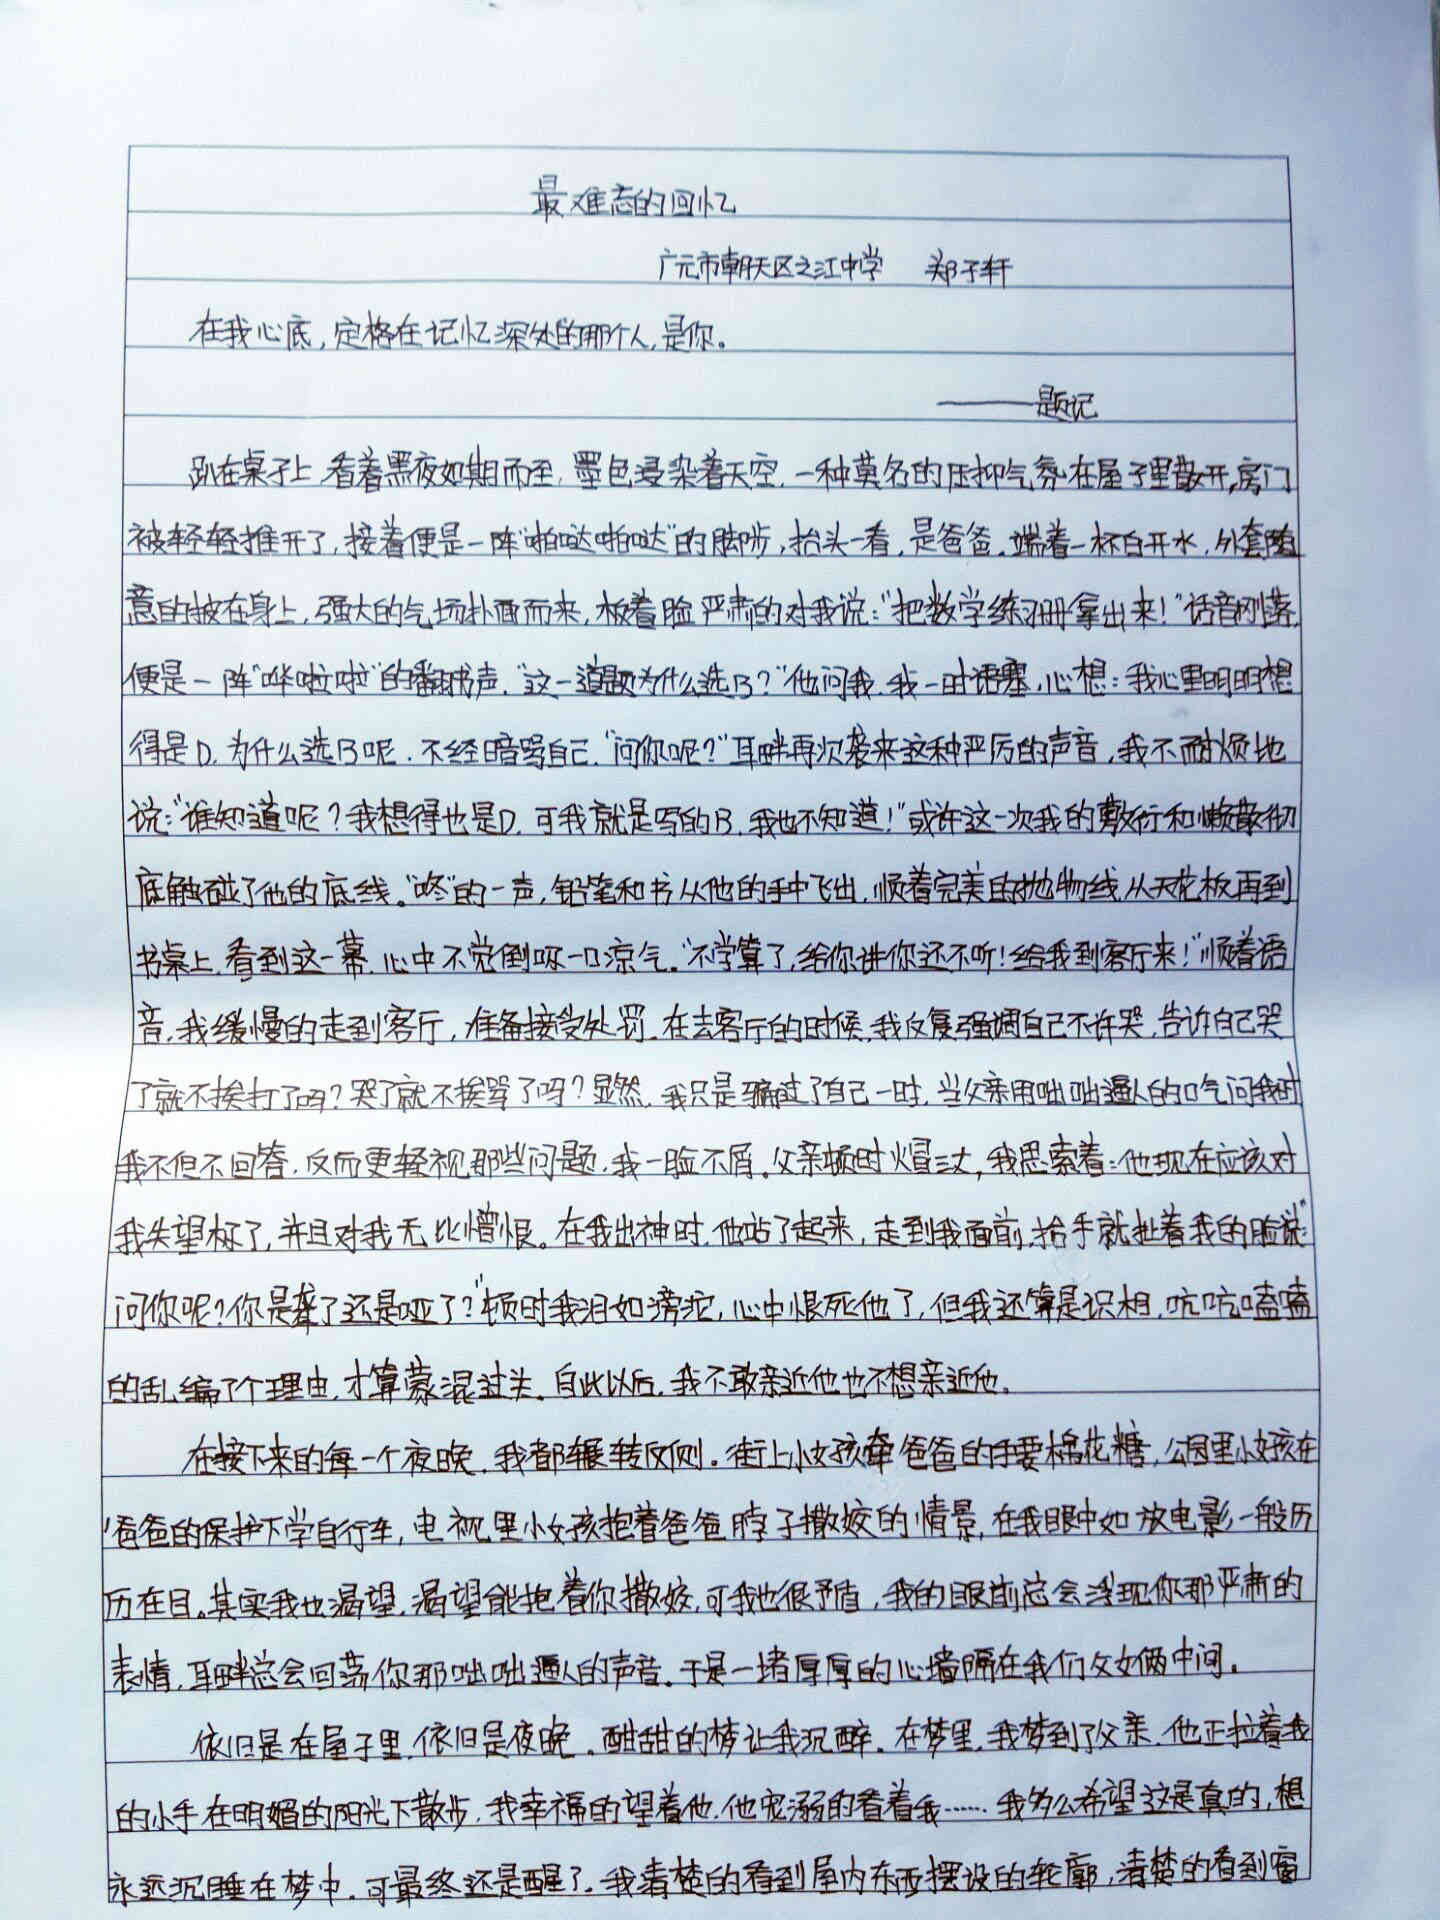 最难忘的回忆
广元市朝天区之江中学 郑子轩
在我心底,定格在记忆深处的那个人,是你。
——题记
趴在桌子上,看着黑夜如期而至,墨色浸染着天空,一种莫名的压抑气氛在屋子里散开,房门
被轻轻推开了,接着便是一阵“啪哒啪哒”的脚步,抬头一看,是爸爸,端着一杯白开水,外套随
意的披在身上,强大的气场扑面而来,板着脸严肃的对我说:“把数学练习册拿出来!”话音刚落,
便是一阵“哗啦啦”的翻书声,“这一道题为什么选B?”他问我,我一时语塞,心想:我心里明明想
得是D,为什么选B呢,不经暗骂自己,“问你呢?”耳畔再次袭来这种严厉的声音,我不耐烦地
说:“谁知道呢?我想得也是D,可我就是写的B,我也不知道!”或许这一次我的敷衍和懒散彻
底触碰了他的底线。“咚”的一声,铅笔和书从他的手中飞出,顺着完美的抛物线,从天花板再到
书桌上,看到这一幕,心中不觉倒吸一口凉气。“不学算了,给你讲你还不听!给我到客厅来!”顺着语
音,我缓慢的走到客厅,准备接受处罚。在去客厅的时候,我反复强调自己不许哭,告诉自己哭
了就不挨打了吗?哭了就不挨骂了吗?显然,我只是骗过了自己一时,当父亲用咄咄逼人的口气问我时
我不但不回答,反而更轻视那些问题,我一脸不屑。父亲顿时火冒三丈,我思索着:他现在应该对
我失望极了,并且对我无比憎恨。在我出神时,他站了起来,走到我面前,抬手就扯着我的脸说:“
问你呢?你是聋了还是哑了?”顿时我泪如滂沱,心中恨死他了,但我还算是识相,吭吭嗑嗑
的乱编了个理由,才算蒙混过关。自此以后,我不敢亲近他也不想亲近他。
在接下来的每一个夜晚,我都辗转反侧。街上小女孩牵爸爸的手要棉花糖,公园里小女孩在
爸爸的保护下学自行车,电视里小女孩抱着爸爸脖子撒姣的情景,在我眼中如放电影一般历
历在目。其实我也渴望,渴望能抱着你撒姣,可我也很矛盾,我的眼前总会浮现你那严肃的
表情,耳畔总会回荡你那咄咄逼人的声音。于是一堵厚厚的心墙隔在我们父女俩中间。
依旧是在屋子里,依旧是夜晚,酣甜的梦让我沉醉。在梦里,我梦到了父亲,他正拉着我
的小手在明媚的阳光下散步,我幸福的望着他,他宠溺的看着我……我多么希望这是真的,想
永远沉睡在梦中,可最终还是醒了。我清楚的看到屋内东西摆设的轮廓,清楚的看到窗